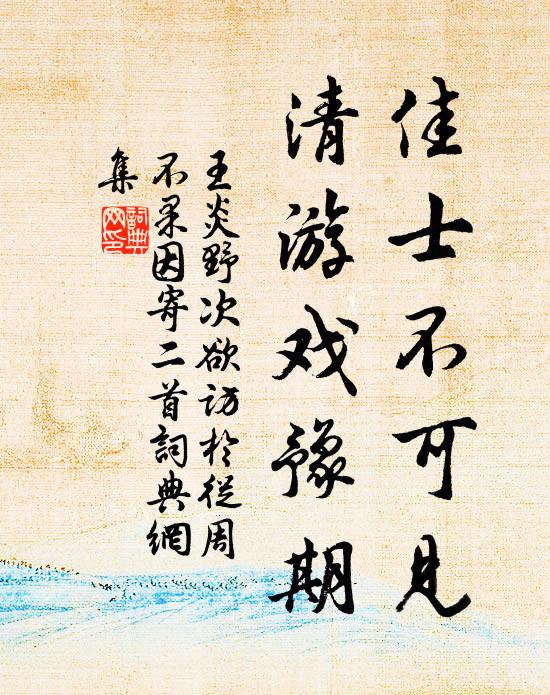 佳士不可見
清游戏豫期
王炎野次欲访於從周
不果因寄二首詞典網
集
詞典
网印